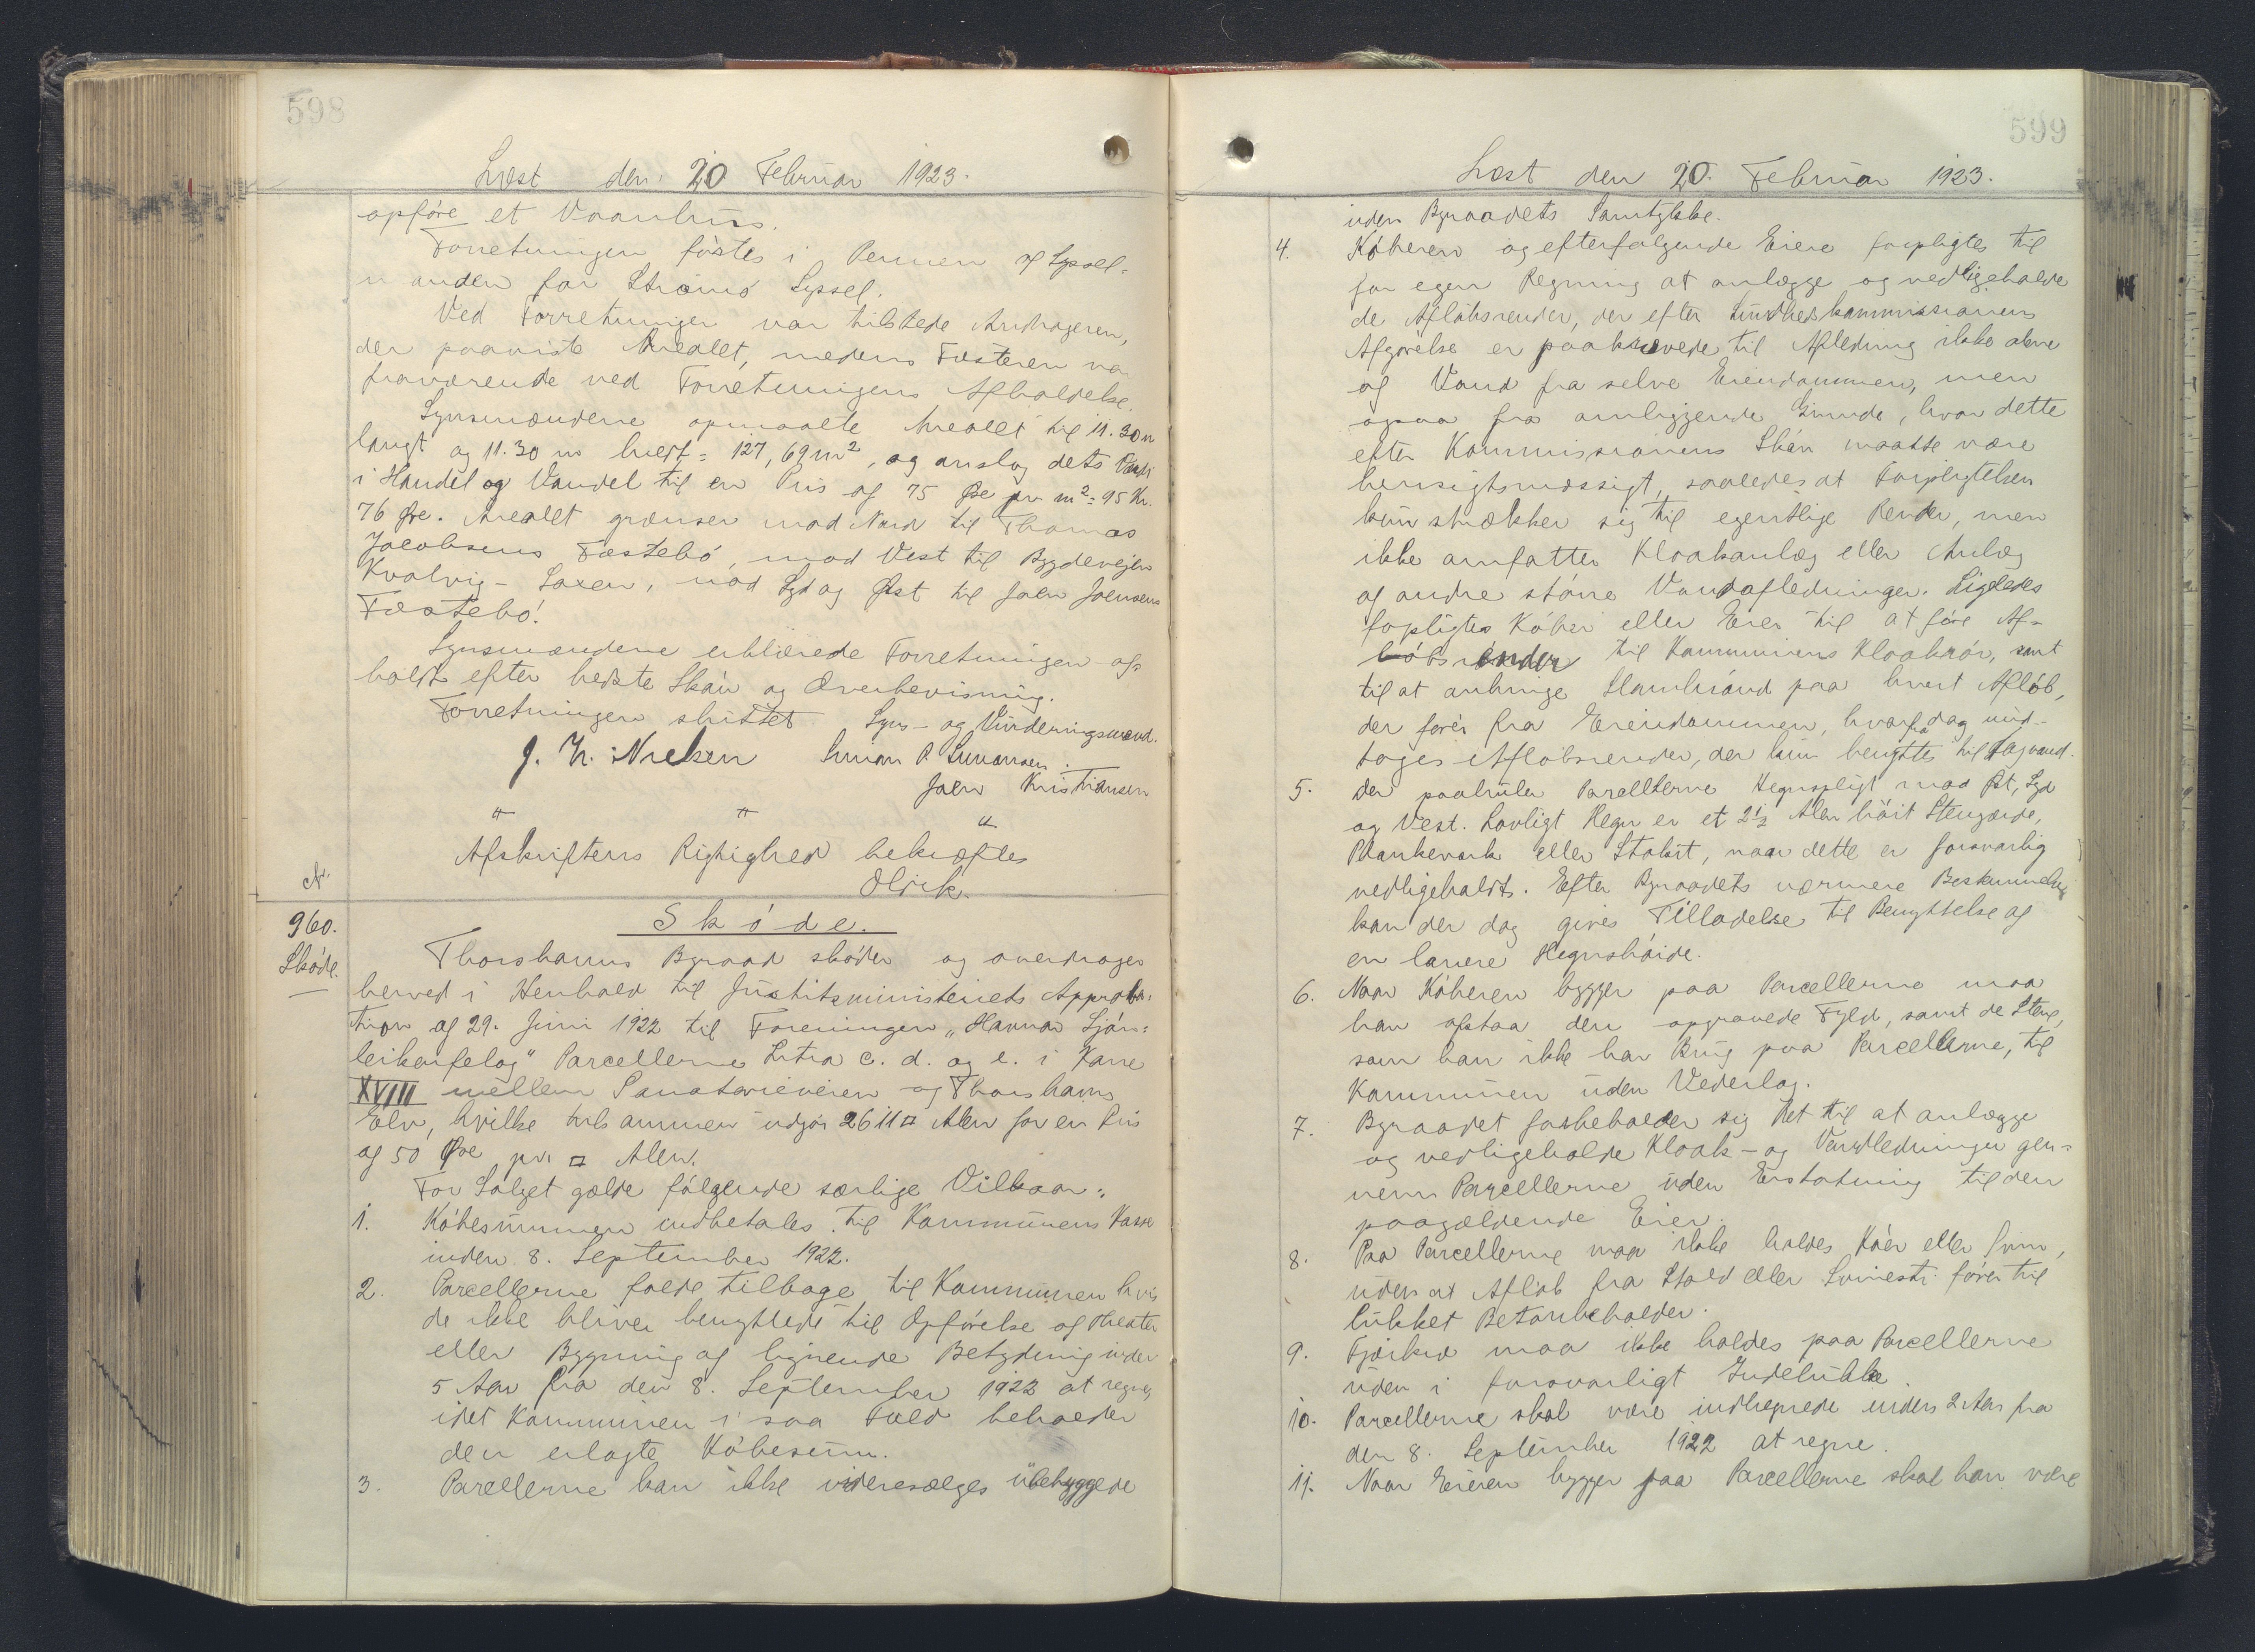 598
Læst den 20 Februar 1923.
opføre et Vaanhus.
Forretningen førtes i Pennen af Syssel-
manden for Strømø Syssel.
Ved Forretningen var tilstede Andrageren,
der paaviste Arealet, medens Fæsteren var
fraværende ved Forretningens Afholdelse.
Synsmændene opmaalte Arealet til 11.30 m
langt og 11.30 m bredt = 127,69 m², og anslog dets Værdi
i Handel og Vandel til en Pris af 75 Øre pr. m² = 95 Kr.
76 Øre. Arealet grænser mod Nord til Thomas
Jacobsens Fæstebø, mod Vest til Bygdevejen
Kvalvig - Saxen, mod Syd og Øst til Joen Joensens
Fæstebø.
Synsmændene erklærede Forretningen af-
holdt efter bedste Skøn og Overbevisning.
Forretningen sluttet Syns- og Vurderingsmænd.
J. Kr. Nielsen Simon P. Simonsen.
Joen Kristiansen
" " "
Afskriftens Rigtighed bekræftes
Olrik.
Nr.
960.
Skøde.
Skøde.
Thorshavns Byraad skøder og overdrager
herved i Henhold til Justitsministeriets Approba-
tion af 29. Juni 1922 til Foreningen "Havnar Sjón-
leikarfelag" Parcellerne Litra c. d. og e. i Karre
XVIII mellem Sanatorieveien og Thorshavns
Elv, hvilke tilsammen udgør 2611 □ Alen for en Pris
af 50 Øre pr. □ Alen.
For Salget gælde følgende særlige Vilkaar:
1. Købesummen indbetales til Kommunens Kasse
inden 8. September 1922.
2. Parcellerne falde tilbage til Kommunen hvis
de ikke bliver benyttede til Opførelse af Theater
eller Bygning af lignende Betydning inden
5 Aar fra den 8. September 1922 at regne,
idet Kommunen i saa Fald beholder
den erlagte Købesum.
3. Parcellerne kan ikke videresælges ubebyggede
599
Læst den 20. Februar 1923.
uden Byraadets Samtykke.
4. Køberen og efterfølgende Eiere forpligtes til
for egen Regning at anlægge og vedligeholde
de Afløbsrender, der efter Sundhedskommissionens
Afgørelse er paakrævede til Afledning ikke alene
af Vand fra selve Eiendommen, men
ogsaa fra omliggende Grunde, hvor dette
efter Kommissionens Skøn maatte være
hensigtsmæssigt, saaledes at Forpligtelsen
kun strækker sig til egentlige Render, men
ikke omfatter Kloakanlæg eller Anlæg
af andre større Vandafledninger. Ligeledes
forpligtes Køber eller Eier til at føre Af-
løbsrender til Kommunens Kloakrør, samt
til at anbringe Slambrønd paa hvert Afløb,
der føres fra Eiendommen, hvorfra dog und-
tages Afløbsrender, der kun benyttes til Tagvand.
5. Der paahviler Parcellerne Hegnspligt mod Øst, Syd
og Vest. Lovligt Hegn er et 2½ Alen høit Stengærde,
Plankeværk eller Stakit, naar dette er forsvarlig
vedligeholdt. Efter Byraadets nærmere Bestemmelse
kan der dog gives Tilladelse til Benyttelse af
en lavere Hegnshøide.
6. Naar Køberen bygger paa Parcellerne maa
han afstaa den opgravede Fyld, samt de Stene,
som han ikke har Brug paa Parcellerne, til
Kommunen uden Vederlag.
7. Byraadet forbeholder sig Ret til at anlægge
og vedligeholde Kloak- og Vandledninger gen-
nem Parcellerne uden Erstatning til den
paagældende Eier.
8. Paa Parcellerne maa ikke holdes Køer eller Svin,
uden at Afløb fra Stald eller Svinesti føres til
lukket Betonbeholder.
9. Fjærkræ maa ikke holdes paa Parcellerne
uden i forsvarligt Indelukke.
10. Parcellerne skal være indhegnede inden 2 Aar fra
den 8. September 1922 at regne.
11. Naar Eieren bygger paa Parcellerne skal han være